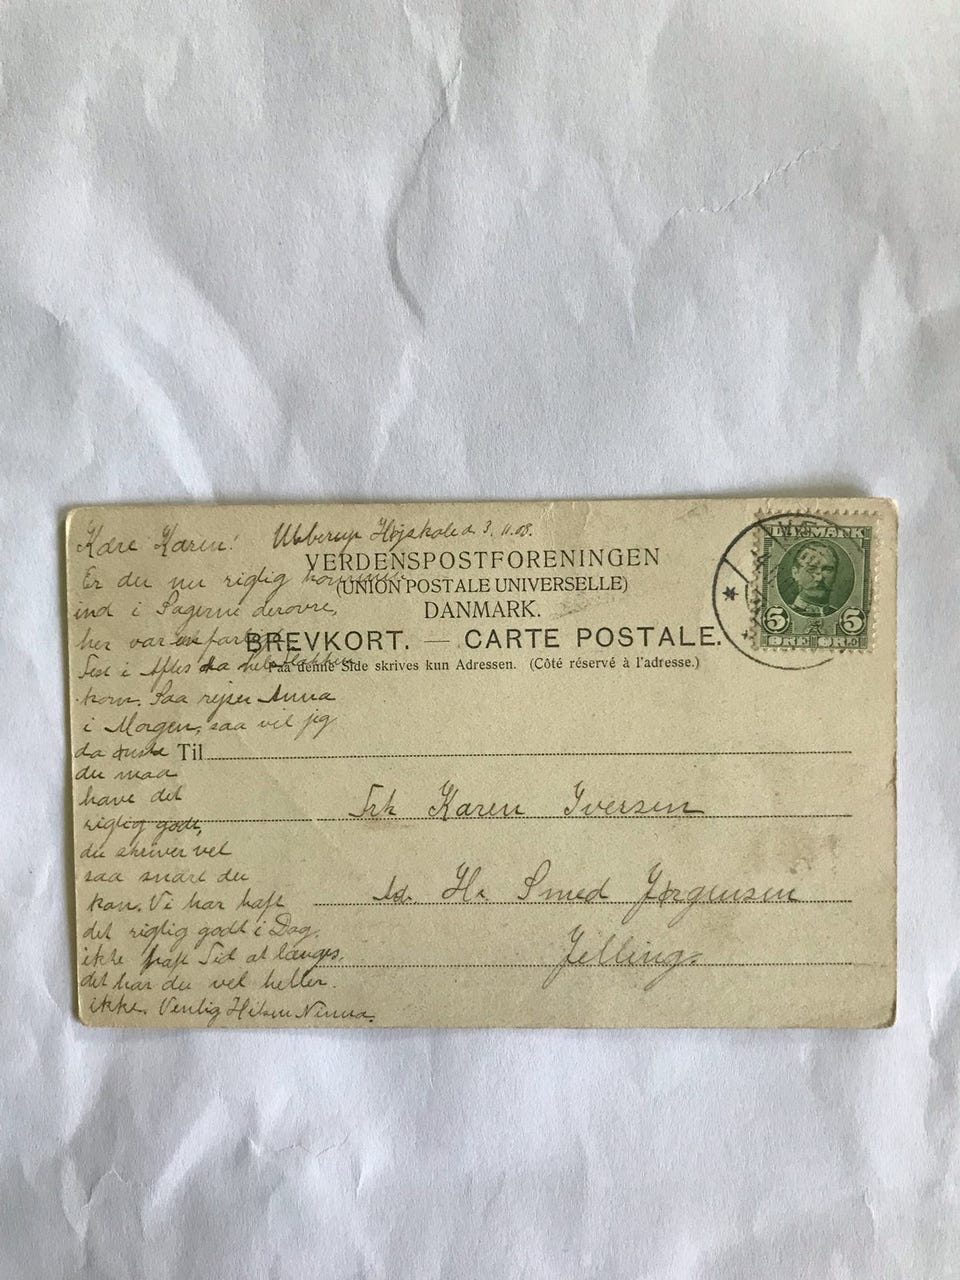 Kære Karen! Ubberup Højskole d 3. 11. 08.
VERDENSPOSTFORENINGEN
(UNION POSTALE UNIVERSELLE)
DANMARK.
BREVKORT. — CARTE POSTALE.
Paa denne Side skrives kun Adressen. (Côté réservé à l'adresse.)
DANMARK
5 5
ØRE ØRE
Er du nu rigtig kommen
ind i Sagerne derovre,
her var en
Fest i Aftes da
kom. Saa rejser Anna
i Morgen, saa vil jeg
da ønske
du maa
have det
rigtig godt,
du skriver vel
saa snart du
kan. Vi har haft
det rigtig godt i Dag,
ikke haft Tid at længes,
det har du vel heller
ikke. Venlig Hilsen Ninna.
Til
Frk Karen Iversen
Ad. Hr. Smed Jørgensen
Jelling.